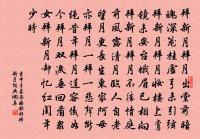 拜新月拜月出堂前暗
魄深籠桂虛弓未引弦
拜新月拜月妝樓上鸞
鏡未安臺蛾眉已相向
拜新月拜月不勝情庭
前風露清月臨人自老
望月更長生東家阿母
亦拜月一拜一悲聲斷
絕昔年拜月逞容儀如
今拜月雙淚垂回看眾
女拜新月卻憶紅閨年
少時